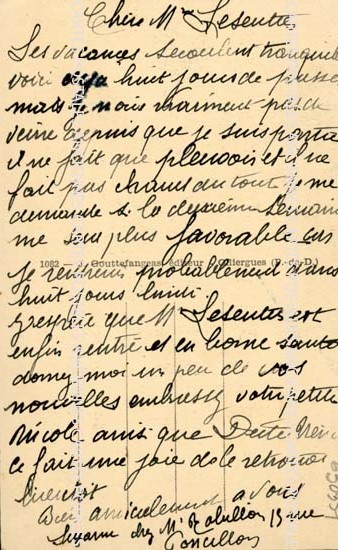 Chère Mme Lesentre
Les vacances s'écoulent tranquille
voici déjà huit jours de passé
mais je n'ais vraiment pas de
veine depuis que je suis partie
il ne fait que pleuvoir et il ne
fait pas chaud du tout je me
demande si la deuxième semaine
me sera plus favorable car
1082 — Gouttefangeas, éditeur Olliergues (P.-de-D.)
Je rentrerai probablement dans
huit jours lundi.
J'espère que Mr Lesentre est
enfin rentré et en bonne santé
donnez moi un peu de vos
nouvelles embrassez votre petite
Nicole ainsi que
ce fait une joie de le retrouver
bientôt
Bien amicalement à vous
Suzanne chez Mr 13 rue